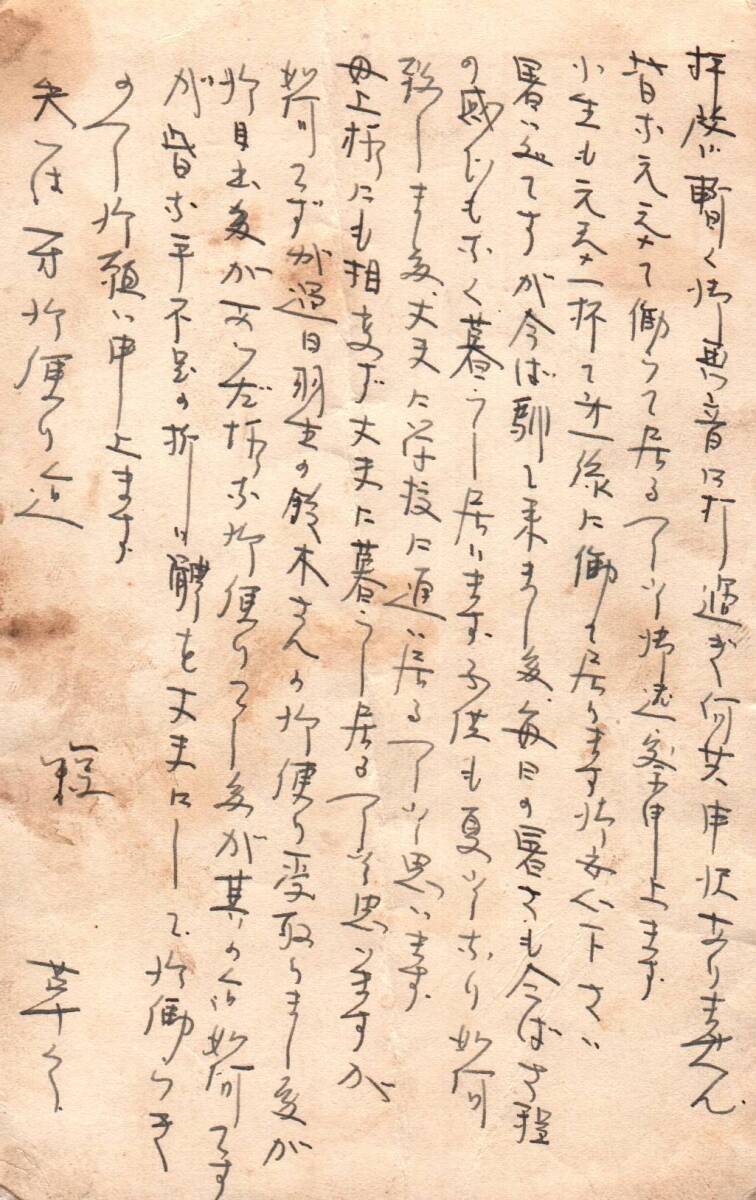 拝啓 暫く御無音に打過ぎ何共申訳ありません
皆な元気で働らいて居る事と御遠察申し上ます
小生も元気一杯で第一線に働て居ります御安心下さい
暑い処ですが今は馴て来ました毎日の暑さも今ばさ程
の感じもなく暮らし居います子供も夏となり如何
致しました丈夫に学校に通い居る事と思います
母上様にも相変ず丈夫に暮らし居る事と思いますが
如何ですが過日羽生の鈴木さんの御便り受取りましたが
御目出多が有つた様な御便りでしたが其の后如何です
が皆な平不足の折し體を丈夫にして御働らき
の事御願い申上ます
先つは一寸御便り迄
草々